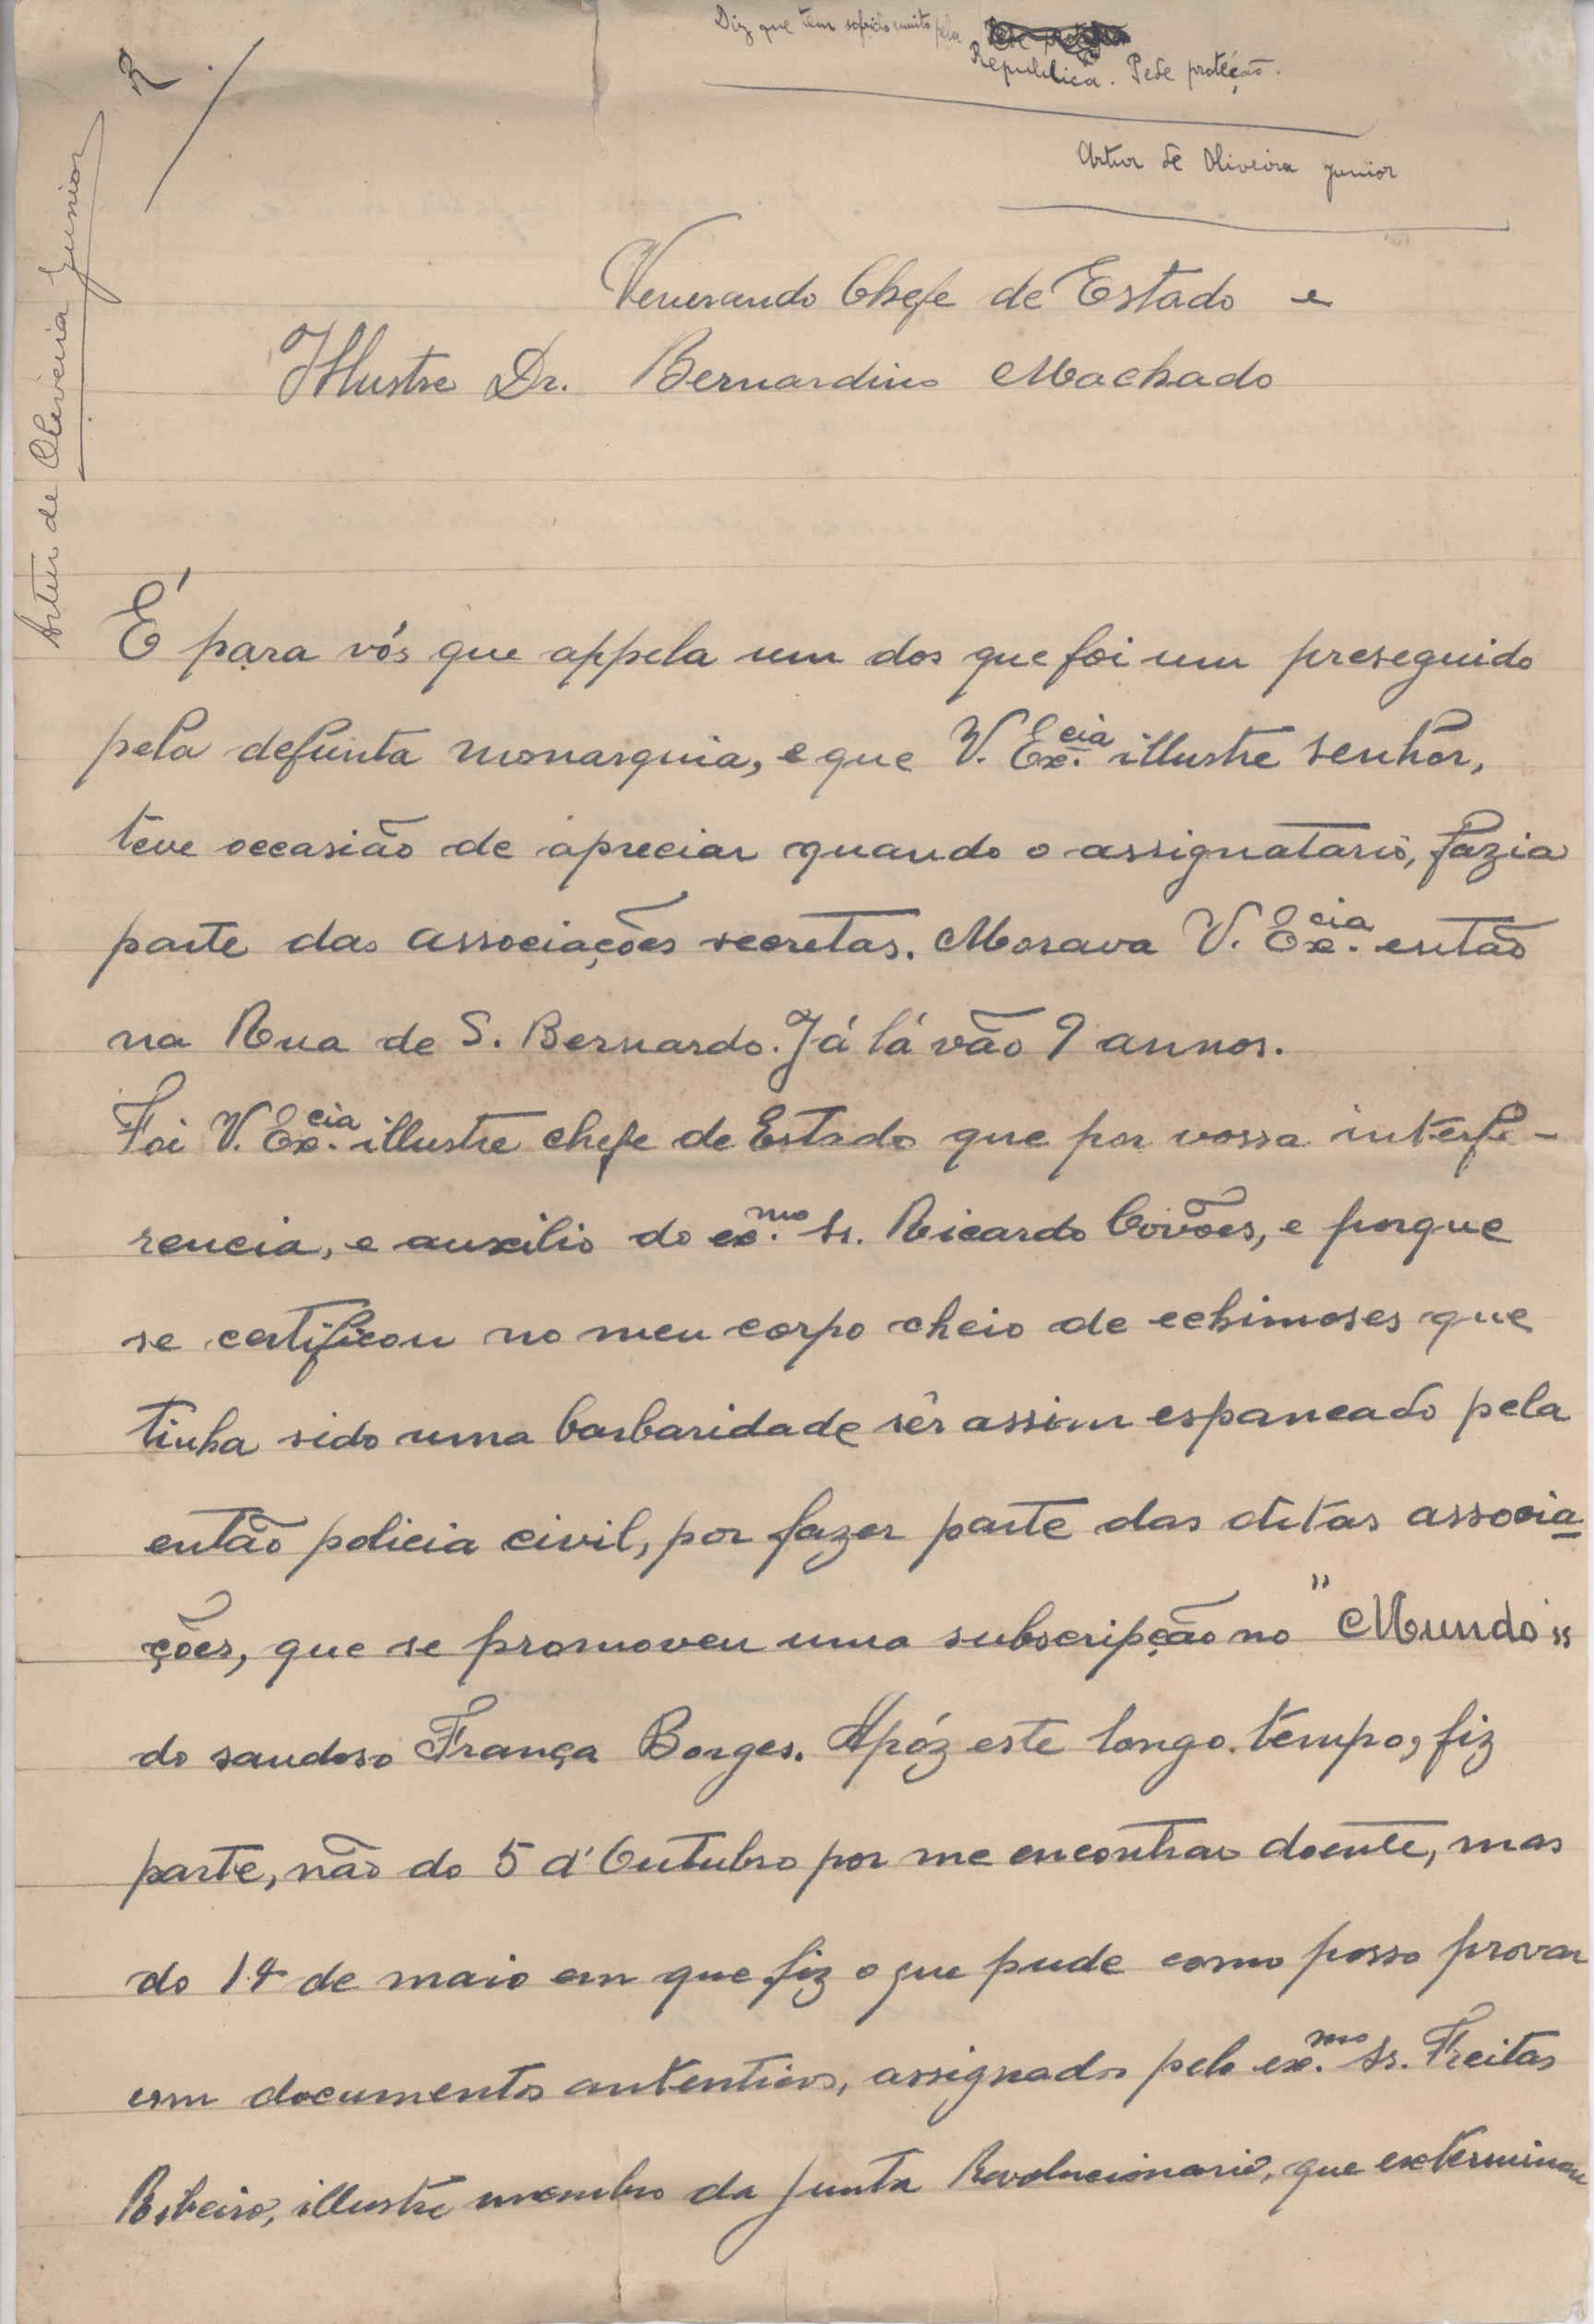 Diz que tem sofrido muito pela
Republica. Pede proteção.
Artur de Oliveira Junior
R.
Artur de Oliveira Junior
Venerando Chefe de Estado e
Illustre Dr. Bernardino Machado
É para vós que appela um dos que foi um preseguido
pela defunta monarquia, e que V. Ex.cia illustre senhôr,
teve occasião de apreciar quando o assignatario, fazia
parte das associações secretas. Morava V. Ex.cia então
na Rua de S. Bernardo. Já lá vão 9 annos.
Foi V. Ex.cia illustre chefe de Estado que por vossa interfe-
rencia, e auxilio do ex.mo sr. Ricardo Covões, e porque
se certificou no meu corpo cheio de echimoses que
tinha sido uma barbaridade sêr assim espancado pela
então policia civil, por fazer parte das ditas associa-
ções, que se promoveu uma subscripção no "Mundo"
do saudoso França Borges. Apóz este longo tempo, fiz
parte, não do 5 d'Outubro por me encontrar doente, mas
do 14 de maio em que fiz o que pude como posso provar
com documentos autenticos, assignados pelo ex.mo sr. Freitas
Ribeiro, illustre membro da Junta Revolucionaria, que exterminou